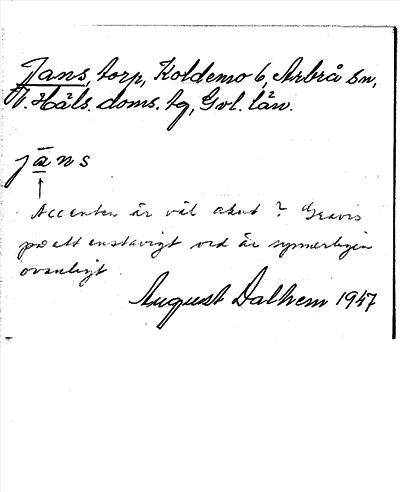 Jans, torp, Koldemo 6, Arbrå sn,
N. Häls. doms. tg, Gvl. län.
jäns
↑
Accenten är väl akut? Gravis
på ett enstavigt ord är synnerligen
ovanligt.
August Dalhem 1947